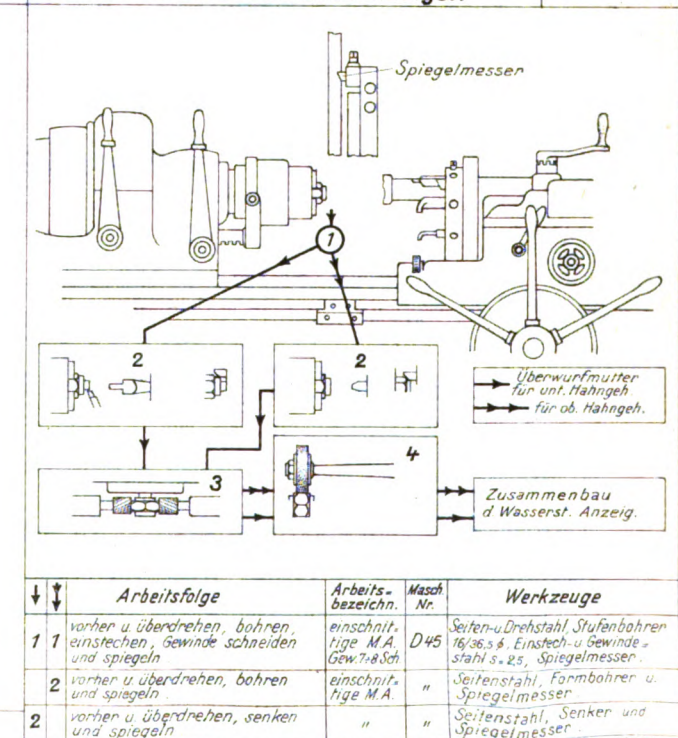 Spiegelmesser
1
2
2
Überwurfmutter
für unt. Hahngeh.
für ob. Hahngeh.
3
4
Zusammenbau
d. Wasserst. Anzeig.
Arbeitsfolge
Arbeits-
bezeichn.
Masch.
Nr.
Werkzeuge
1 1 vorher u. überdrehen, bohren,
einstechen, Gewinde schneiden
und spiegeln
einschnit-
tige M.A.
Gew. 7÷8 Sch
D45
Seiten- u. Drehstahl, Stufenbohrer
16/36,5 ϕ, Einstech- u. Gewinde-
stahl s = 2,5, Spiegelmesser.
2 vorher u. überdrehen, bohren
und spiegeln.
einschnit-
tige M.A.
"
Seitenstahl, Formbohrer u.
Spiegelmesser
2 vorher u. überdrehen, senken
und spiegeln
"
"
Seitenstahl, Senker und
Spiegelmesser.